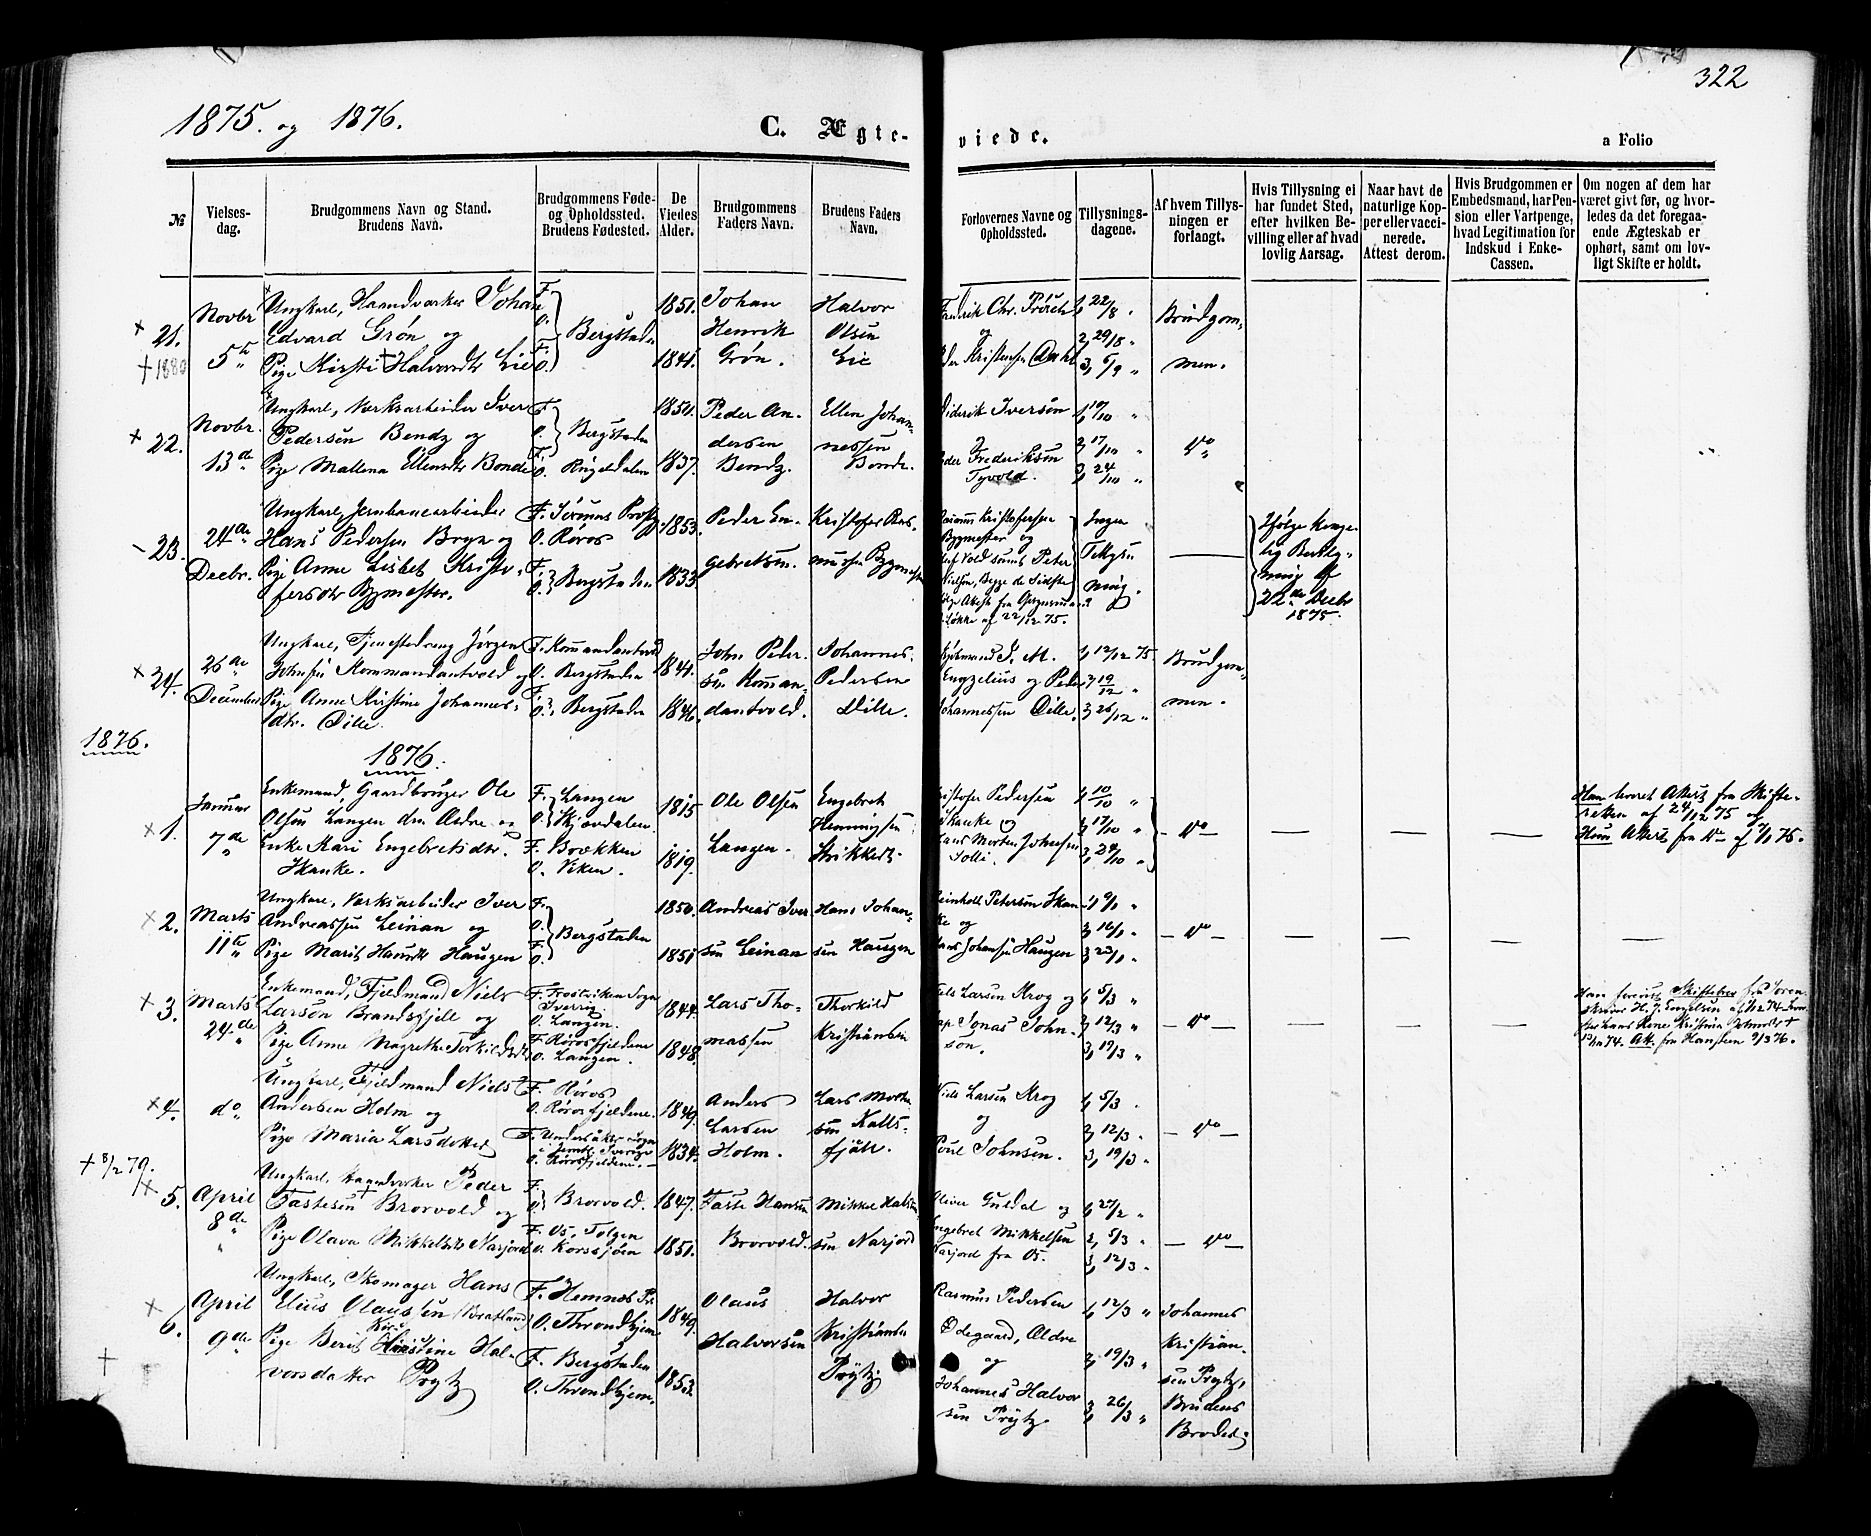 322
1875. og 1876.
C. Ægte-
viede.
a Folio
№
Vielses-
dag.
Brudgommens Navn og Stand.
Brudens Navn.
Brudgommens Føde-
og Opholdssted.
Brudens Fødested.
De
Viedes
Alder.
Brudgommens
Faders Navn.
Brudens Faders
Navn.
Forlovernes Navne og
Opholdssted.
Tillysnings-
dagene.
Af hvem Tillys-
ningen er
forlangt.
Hvis Tillysning ei
har fundet Sted,
efter hvilken Be-
villing eller af hvad
lovlig Aarsag.
Naar havt de
naturlige Kop-
per eller vacci-
nerede.
Attest derom.
Hvis Brudgommen er
Embedsmand, har Pen-
sion eller Vartpenge,
hvad Legitimation for
Indskud i Enke-
Cassen.
Om nogen af dem har
været givt før, og hvor-
ledes da det foregaa-
ende Ægteskab er
ophørt, samt om lov-
ligt Skifte er holdt.
+ 21.
+ 1880
Novbr
5te
Ungkarl, Haandværker Johan
Edvard Grøn og
Pige Kirsti Halvorsdtr Lie
F.
O.
F.
O.
Bergstaden
1851.
1841.
Johan
Henrik
Grøn.
Halvor
Olsen
Lie
Fredrik Chr.
og
Kristensen Dahl
1, 22/8 "
2, 29/8 "
3, 5/9 "
Brudgom-
men.
+ 22.
Novbr.
13de
Ungkarl, Værksarbeider Iver
Pedersen Bendz og
Pige Mallena Ellensdtr Bonde
F.
O. Bergstaden
F.
O. Ringdalen
1850.
1837.
Peder An-
dersen
Bendz.
Ellen Johan-
nessen
Bonde.
Diderik Iversen
Peder Frederiksen
Tyvold.
1, 10/10 "
2, 17/10 "
3, 24/10 "
Do
- 23.
24de
Decbr.
Ungkarl, Jernbanearbeider
Hans Pedersen Brye og
Pige Anne Lisbet Kristo-
fersdtr Bygmester.
F. Sørums Prstg
O. Røros
F.
O. Bergstaden
1853.
1833.
Peder En-
gebretsen.
Kristofer Ras-
mussen Bygmester
Rasmus Kristofersen
Bygmester og
Peter
Nielsen, Begge de Sidste
af 22/12 75.
Ingen
Tillys-
ning.
Ifølge konge-
lig Bevilg-
ning af
22de Decbr
1875.
+ 24.
26de
December
Ungkarl, Tjenestedreng Jørgen
Johnsen Kommandantvold og
Pige Anne Kirstine Johannes-
dtr. Dille.
F. Kommandantvold
O. Bergstaden
F.
O. Bergstaden
1841.
1846.
John Peder-
sen Komman-
dantvold.
Johannes
Pedersen
Dille.
Kjøbmand J. M.
Engzelius og Peder
Johannessen Dille.
1, 12/12 75.
2, 19/12 "
3, 26/12 "
Brudgom-
men.
1876.
1876.
+ 1.
Januar
7de
Enkemand, Gaardbruger Ole
Olsen Langen den Ældre og
Enke Kari Engebretsdtr.
Skanke.
F. Langen
O. Skjærdalen.
F. Brækken
O. Viken.
1815
1819.
Ole Olsen
Langen.
Engebret
Henningsen
Kristofer Pedersen
Skanke og
Hans Morten Johnsen
Solli.
1, 10/10 "
2, 17/10 "
3, 24/10 "
- Do -
Han leveret Attest fra Skifte-
retten af 24/12 75 og
Hun Attest fra Do af 7/1 76.
+ 2.
Marts
11te
Ungkarl, Værksarbeider Iver
Andreassen Leinan og
Pige Marit Hansdtr Haugen
F.
O.
F.
O.
Bergstaden
1850.
1851
Andreas Iver
sen Leinan
Hans Johan-
sen Haugen
Reinholt Petersen Skan-
ke og
Hans Johansen Haugen
1, 9/1 "
2, 16/1 "
3, 23/1 "
- Do -
+ 3.
Marts
24de
Enkemand, Fjeldmand Niels
Larsen Brandsfjell og
Pige Anne Magrethe Torkildsdtr
F. Frostviken Sogn
Sverrig
O. Langen.
F. Rørosfjeldene
O. Langen.
1844.
1848.
Lars Tho-
massen
Thorkild
Kristiansen
Niels Larsen Krog og
Jonas John-
sen.
1, 5/3 "
2, 12/3 "
3, 19/3 "
- Do -
Han forevist Skiftebrev fra Soren-
skriver H. J. Engelsen af
74. At. fra Hansteen 9/3 76.
+ 4.
do
Ungkarl, Fjeldmand Niels
Andersen Holm og
Pige Maria Larsdatter
F. Røros
O. Rørosfjeldene.
F. Undersåker Sogn
i Jemtl. Sverige
O. Rørosfjeldene.
1849.
1834.
Anders
Larsen
Holm.
Lars Morten
sen Kalls-
fjäll.
Niels Larsen Krog
og
Poul Johnsen.
1, 5/3 "
2, 12/3 "
3, 19/3 "
- Do -
+ 8/2 79.
+ 5.
April
8de
Ungkarl, Haandværker Peder
Tastesen Brorvold og
Pige Olava Mikkelsdtr Narjord
F.
O. Brorvold.
F. Os, Tolgen
O. Korssjøen
1847.
1851.
Taste Hansen
Brorvold.
Mikkel Halvor
sen Narjord
Oliver Guldal og
Engebret Mikkelsen
Narjord fra Os.
1, 27/2 "
2, 5/3 "
3, 12/3 "
- Do -
+ 6.
+
April
9de
Ungkarl, Skomager Hans
Elius Olaussen (Bratland)
Pige Berit Kirstine Hal-
vorsdatter Prytz
F. Hemnæs Pr.
O. Throndhjem
F. Bergstaden
O. Throndhjem.
1849.
1853.
Olaus
Halvorsen
Halvor
Kristiansen
Prytz.
Rasmus Pedersen
Ødegaard, Ældre
og
Johannes Halvor
sen Prytz.
1, 12/3 "
2, 19/3 "
3, 26/3 "
Johannes
Kristian-
sen Prytz,
Brudens
Broder.